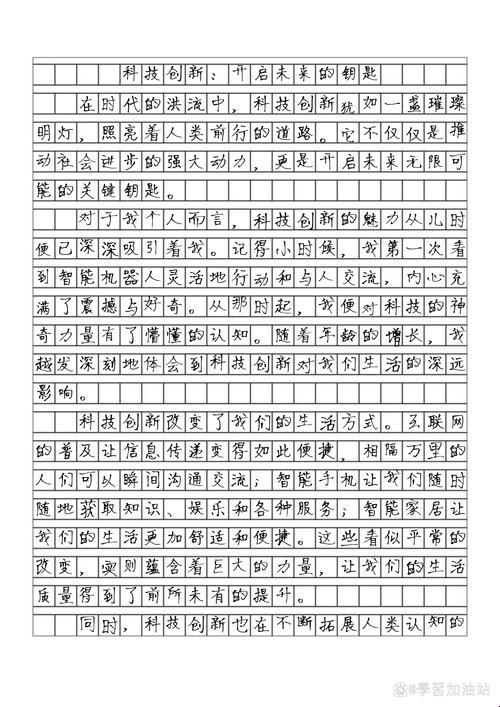 科技创新：开启未来的钥匙
在时代的洪流中，科技创新犹如一盏璀璨
明灯，照亮着人类前行的道路。它不仅仅是推
动社会进步的强大动力，更是开启未来无限可
能的关键钥匙。
对于我个人而言，科技创新的魅力从儿时
便已深深吸引着我。记得小时候，我第一次看
到智能机器人灵活地行动和与人交流，内心充
满了震撼与好奇。从那时起，我便对科技的神
奇力量有了懵懂的认知。随着年龄的增长，我
越发深刻地体会到科技创新对我们生活的深远
影响。
科技创新改变了我们的生活方式。互联网
的普及让信息传递变得如此便捷，相隔万里的
人们可以瞬间沟通交流；智能手机让我们随时
随地获取知识、娱乐和各种服务；智能家居让
我们的生活更加舒适和便捷。这些看似平常的
改变，实则蕴含着巨大的力量，让我们的生活
质量得到了前所未有的提升。
同时，科技创新也在不断拓展人类认知的
@學習加油站